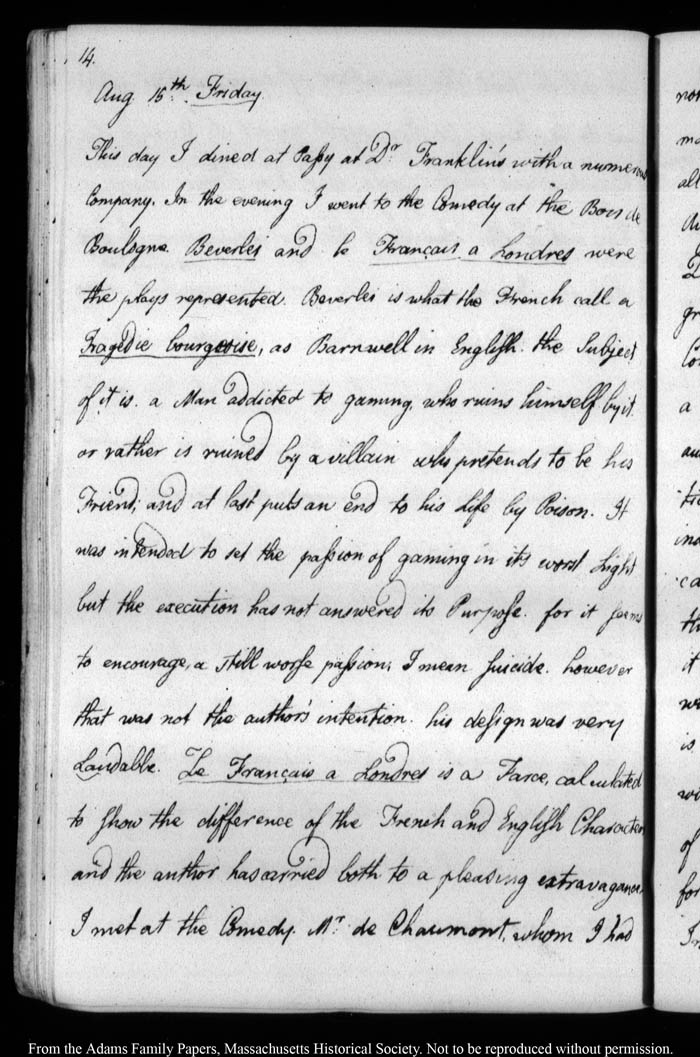 14.
Aug. 15th. Friday.
This day I dined at Passy at Dr. Franklin's with a numerous
Company. In the evening I went to the Comedy at the Bois de
Boulogne. Beverlei and le Français a Londres were
the plays represented. Beverlei is what the French call a
Tragedie bourgeoise, as Barnwell in English. the Subject
of it is a Man addicted to gaming, who ruins himself by it.
or rather is ruined by a villain who pretends to be his
Friend; and at last puts an end to his Life by Poison. It
was intended to set the passion of gaming in its worst Light
but the execution has not answered its Purpose. for it seems
to encourage, a still worse passion; I mean suicide. however
that was not the author's intention. his design was very
Laudable. Le Français a Londres is a Farce, calculated
to show the difference of the French and English Character
and the author has carried both to a pleasing extravagance.
I met at the Comedy. Mr. de Chaumont, whom I had
From the Adams Family Papers, Massachusetts Historical Society. Not to be reproduced without permission.